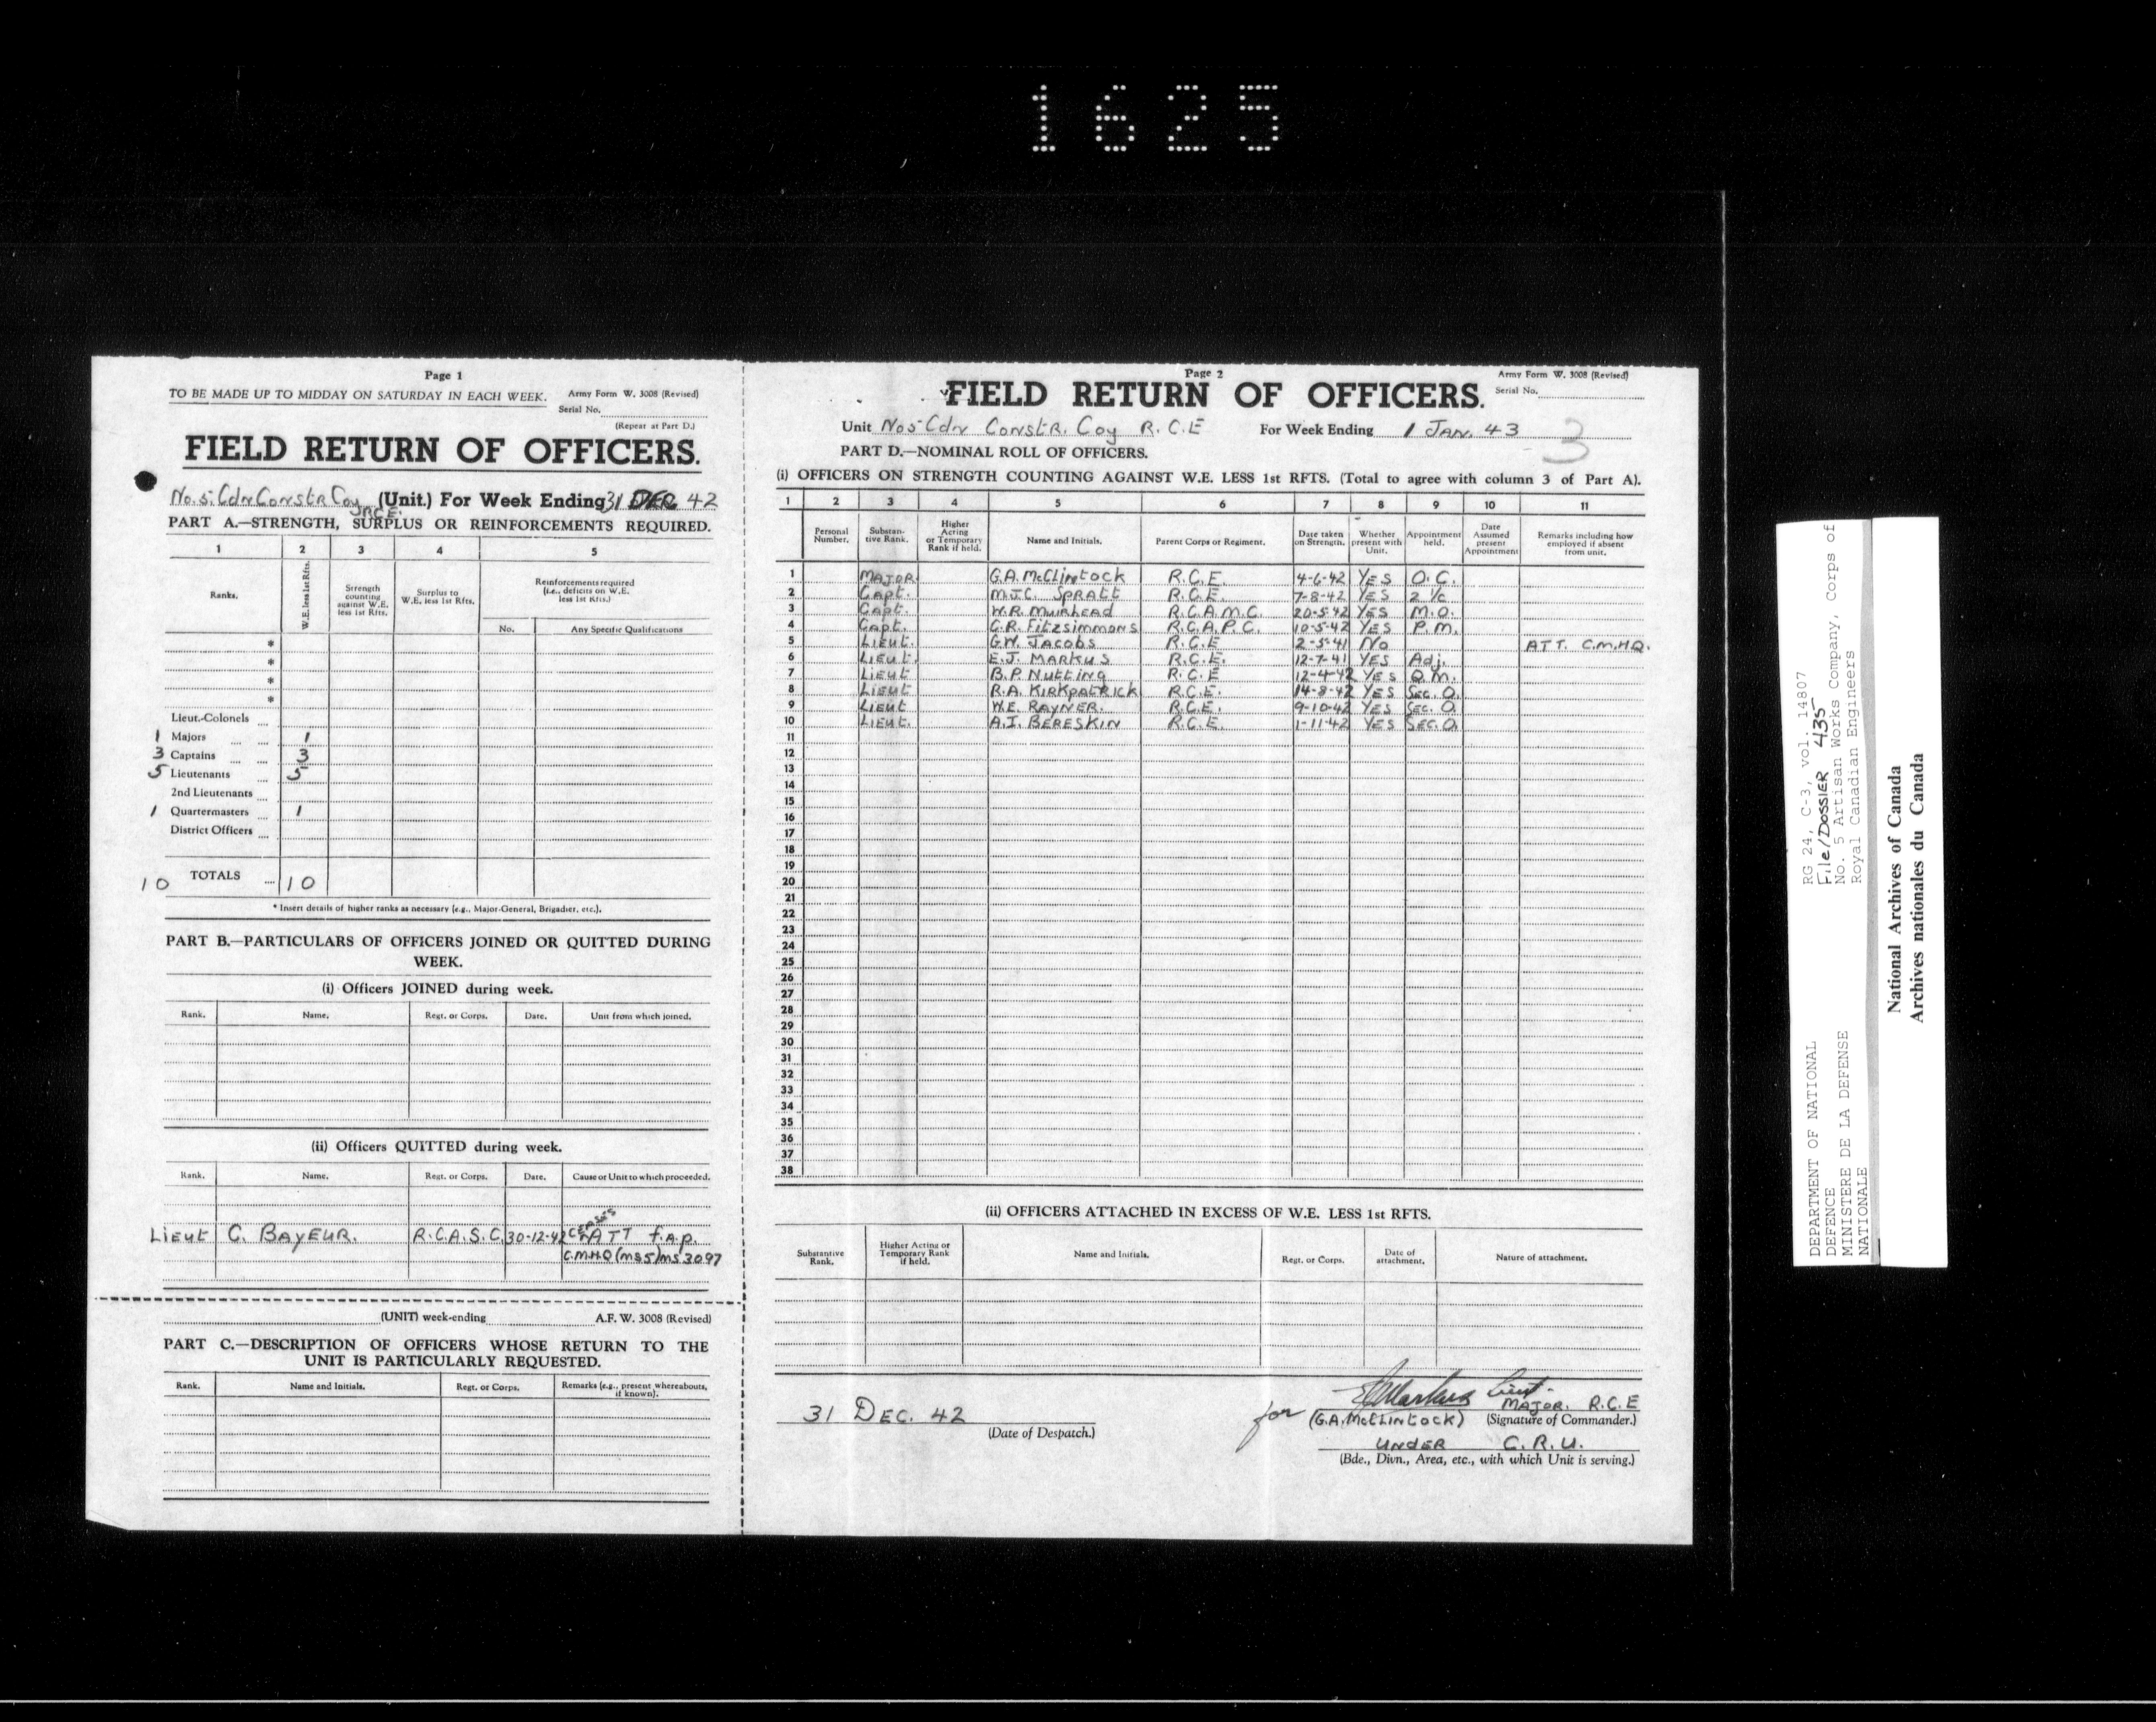 1625
Page 1
TO BE MADE UP TO MIDDAY ON SATURDAY IN EACH WEEK. Army Form W. 3008 (Revised)
Serial No.
(Repeat at Part D.)
FIELD RETURN OF OFFICERS.
No. 5 Cdn Constr Coy RCE. (Unit.) For Week Ending 31 DEC 42
PART A.—STRENGTH, SURPLUS OR REINFORCEMENTS REQUIRED.
1 2 3 4 5
Ranks. W.E. less 1st Rfts. Strength counting against W.E. less 1st Rfts. Surplus to W.E. less 1st Rfts. Reinforcements required (i.e., deficits on W.E. less 1st Rfts.)
No. Any Specific Qualifications
*
*
*
*
Lieut.-Colonels
1 Majors 1
3 Captains 3
5 Lieutenants 5
2nd Lieutenants
1 Quartermasters 1
District Officers
10 TOTALS 10
* Insert details of higher ranks as necessary (e.g., Major-General, Brigadier, etc.).
PART B.—PARTICULARS OF OFFICERS JOINED OR QUITTED DURING
WEEK.
(i) Officers JOINED during week.
Rank. Name. Regt. or Corps. Date. Unit from which joined.
(ii) Officers QUITTED during week.
Rank. Name. Regt. or Corps. Date. Cause or Unit to which proceeded.
Lieut C. BAYEUR. R.C.A.S.C. 30-12-42 CEASES ATT f.a.p.
C.M.H.Q (MS5) MS 3097
(UNIT) week-ending A.F. W. 3008 (Revised)
PART C.—DESCRIPTION OF OFFICERS WHOSE RETURN TO THE
UNIT IS PARTICULARLY REQUESTED.
Rank. Name and Initials. Regt. or Corps. Remarks (e.g., present whereabouts, if known).
Page 2
Army Form W. 3008 (Revised)
FIELD RETURN OF OFFICERS. Serial No.
Unit No 5 Cdn Constr. Coy R.C.E For Week Ending 1 JAN. 43 3
PART D.—NOMINAL ROLL OF OFFICERS.
(i) OFFICERS ON STRENGTH COUNTING AGAINST W.E. LESS 1st RFTS. (Total to agree with column 3 of Part A).
1 2 3 4 5 6 7 8 9 10 11
Personal Number. Substantive Rank. Higher Acting or Temporary Rank if held. Name and Initials. Parent Corps or Regiment. Date taken on Strength. Whether present with Unit. Appointment held. Date Assumed present Appointment Remarks including how employed if absent from unit.
1 MAJOR G.A. McClintock R.C.E. 4-6-42 YES O.C.
2 Capt. M.J.C. SPRATT R.C.E. 7-8-42 YES 2 i/c
3 Capt. W.R. Muirhead R.C.A.M.C. 20-5-42 YES M.O.
4 Capt. C.R. Fitzsimmons R.C.A.P.C. 10-5-42 YES P.M.
5 Lieut. G.W. JACOBS R.C.E 2-5-41 No ATT. C.M.H.Q.
6 Lieut. E.J. MARKUS R.C.E. 12-7-41 YES Adj.
7 Lieut B.P. Nutting R.C.E 12-4-42 YES Q.M.
8 Lieut R.A. KIRKPATRICK R.C.E. 14-8-42 YES Sec. O.
9 Lieut W.E. RAYNER. R.C.E. 9-10-42 YES Sec. O.
10 Lieut. A.I. BERESKIN R.C.E. 1-11-42 YES SEC. O.
11
12
13
14
15
16
17
18
19
20
21
22
23
24
25
26
27
28
29
30
31
32
33
34
35
36
37
38
(ii) OFFICERS ATTACHED IN EXCESS OF W.E. LESS 1st RFTS.
Substantive Rank. Higher Acting or Temporary Rank if held. Name and Initials. Regt. or Corps. Date of attachment. Nature of attachment.
EJ Markus Lieut.
31 DEC. 42 for (G.A. McClintock) MAJOR. R.C.E
(Date of Despatch.) (Signature of Commander.)
UNDER C.R.U.
(Bde., Divn., Area, etc., with which Unit is serving.)
DEPARTMENT OF NATIONAL
DEFENCE
MINISTERE DE LA DEFENSE
NATIONALE
RG 24, C-3, vol. 14807
File/DOSSIER 435
No. 5 Artisan Works Company, Corps of
Royal Canadian Engineers
National Archives of Canada
Archives nationales du Canada